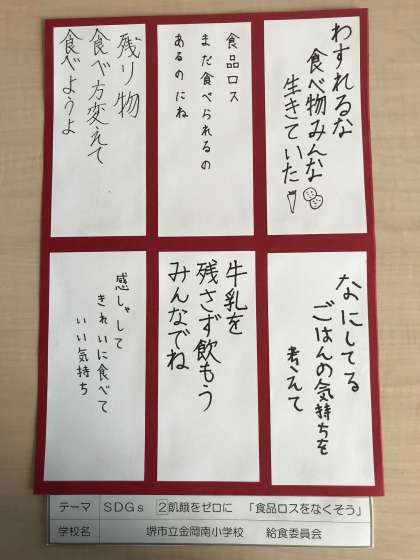 わすれるな
食べ物みんな
生きていた
食品ロス
まだ食べられるの
あるのにね
残り物
食べ方変えて
食べようよ
なにしてる
ごはんの気持ちを
考えて
牛乳を
残さず飲もう
みんなでね
感しゃして
きれいに食べて
いい気持ち
テーマ SDGs 2飢餓をゼロに 「食品ロスをなくそう」
学校名 堺市立金岡南小学校 給食委員会